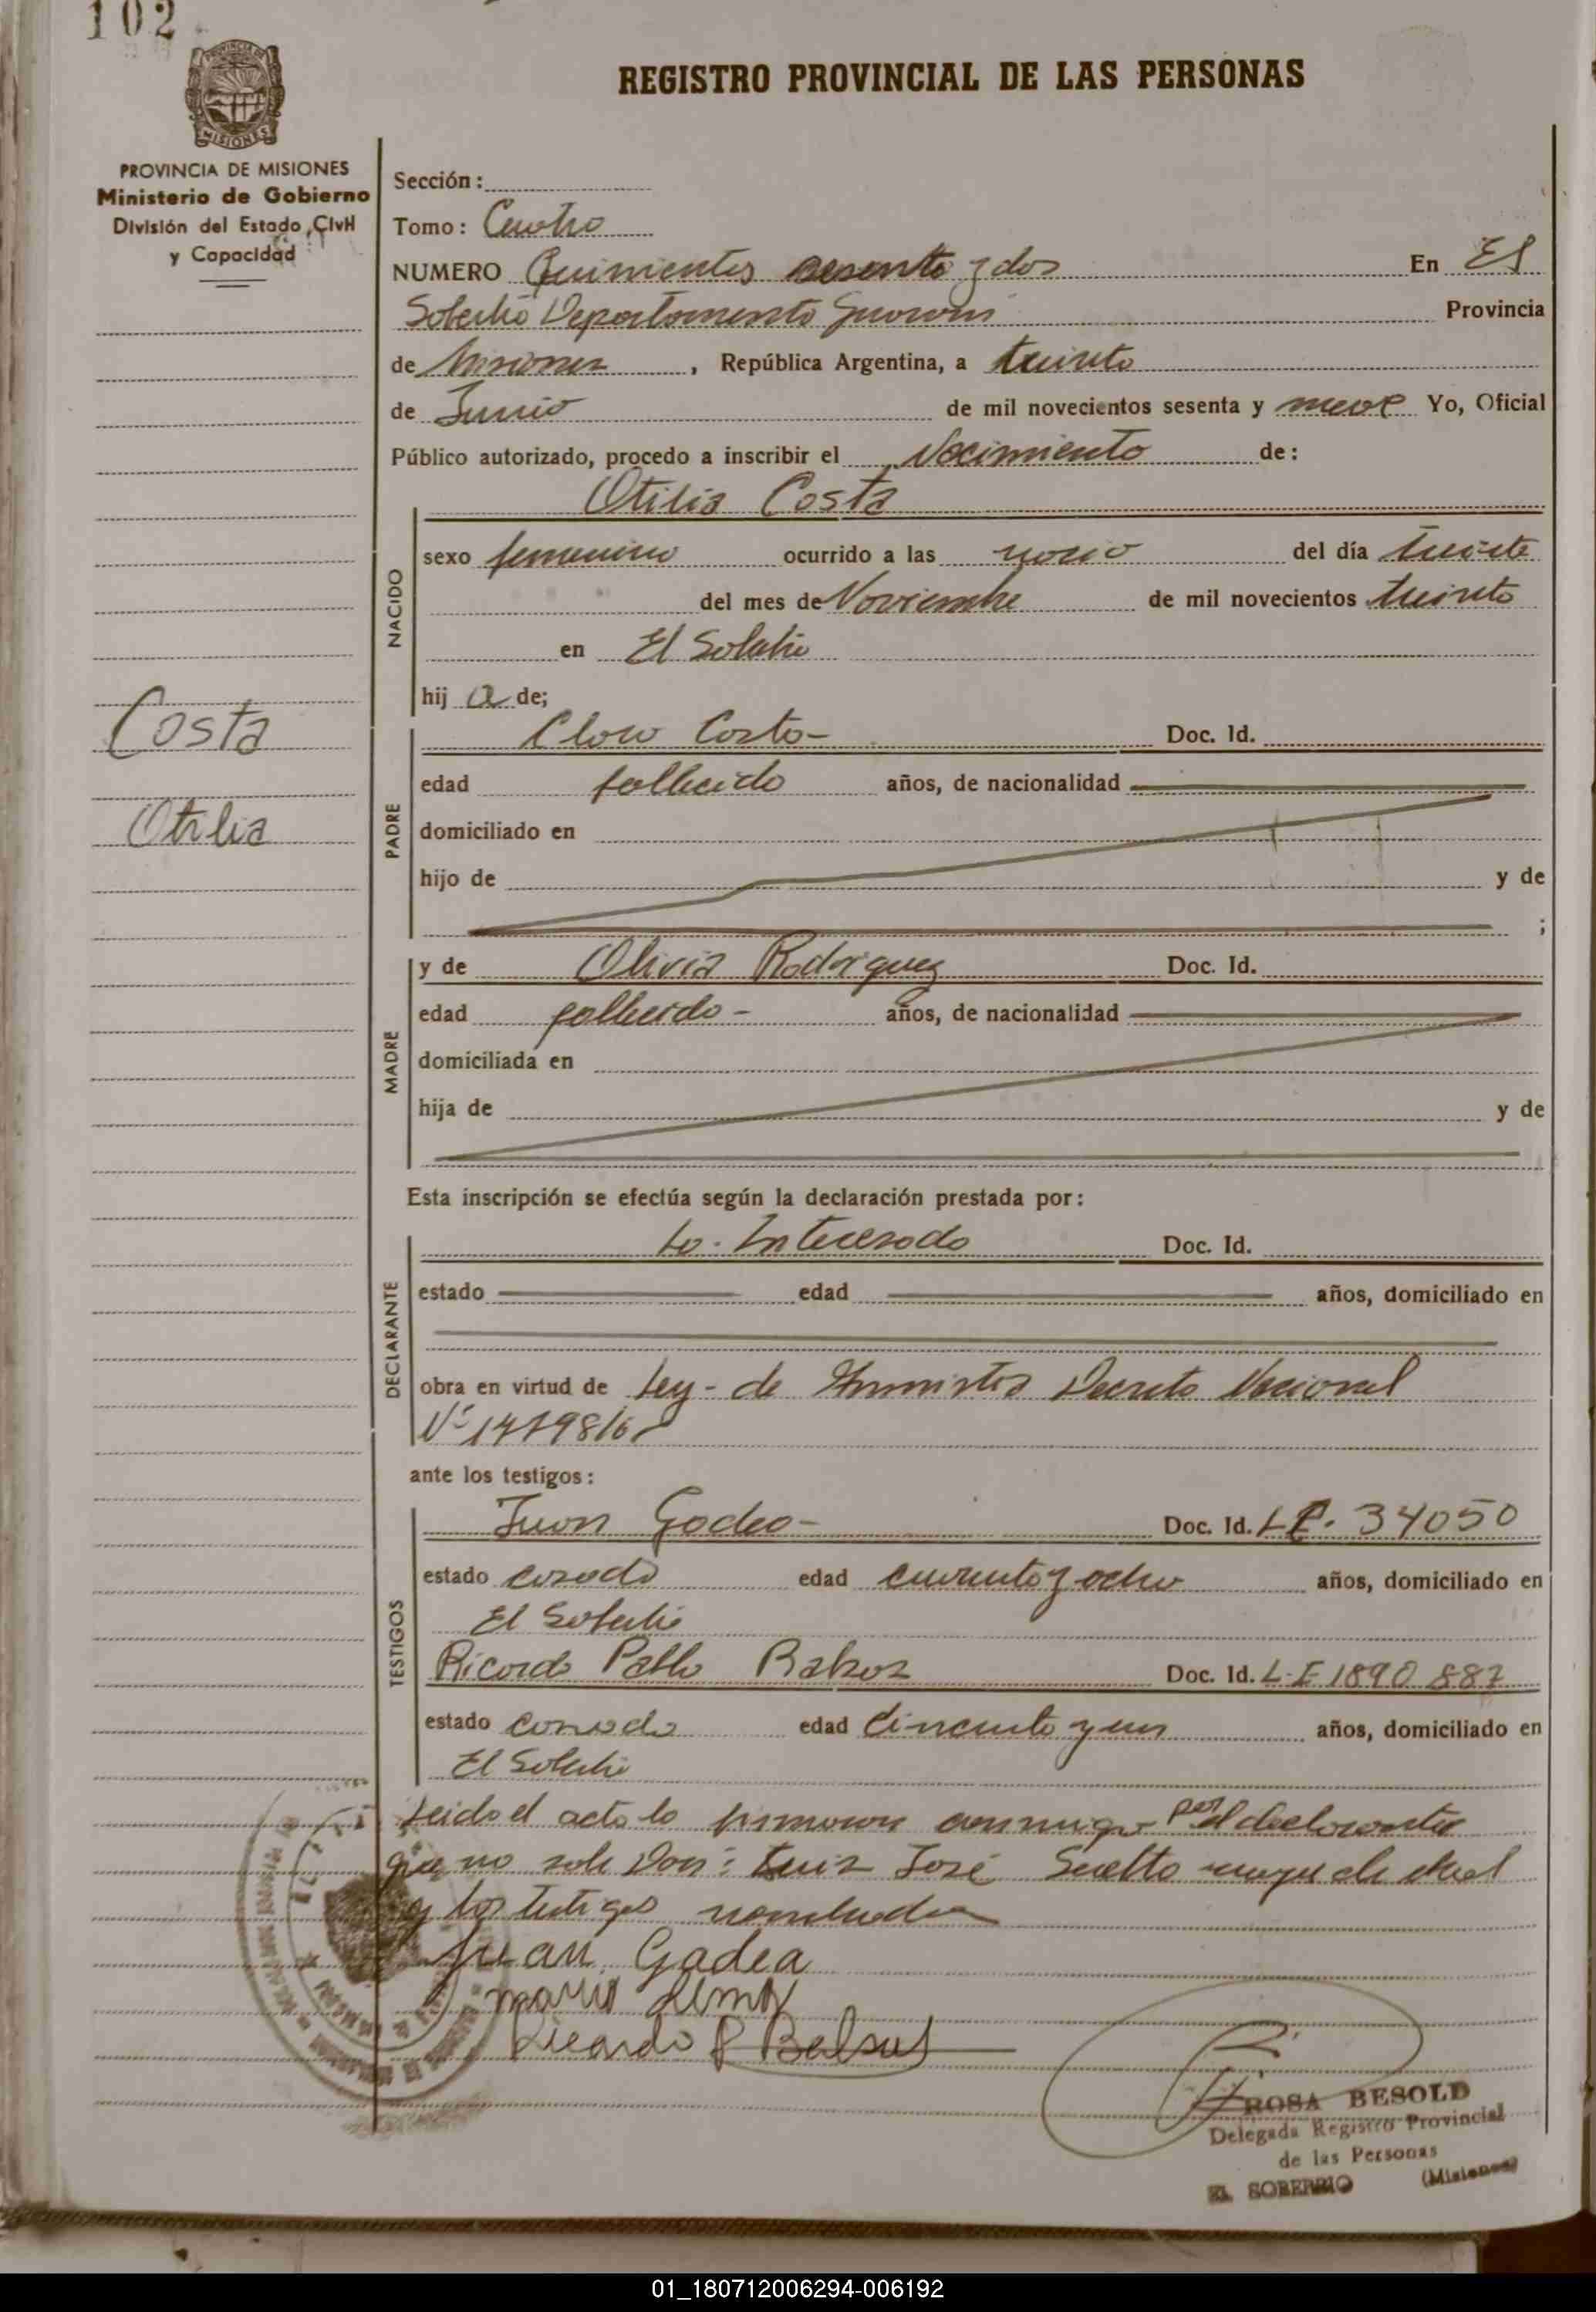 102
REGISTRO PROVINCIAL DE LAS PERSONAS
PROVINCIA DE MISIONES
MISIONES
PROVINCIA DE MISIONES
Ministerio de Gobierno
División del Estado Civil
y Capacidad
Sección:
Tomo: Cuatro
NUMERO Quinientos sesenta y dos En El
Soberbio Departamento Guarani Provincia
de Misiones, República Argentina, a treinta
de Junio de mil novecientos sesenta y nueve Yo, Oficial
Público autorizado, procedo a inscribir el Nacimiento de:
Otilia Costa
NACIDO
sexo femenino ocurrido a las del día treinta
del mes de Noviembre de mil novecientos treinta
en El Soberbio
hij a de;
Costa
Otilia
PADRE
Claro Costa- Doc. Id.
edad fallecido años, de nacionalidad
domiciliado en
hijo de y de
;
MADRE
y de Olivia Rodriguez Doc. Id.
edad fallecida - años, de nacionalidad
domiciliada en
hija de y de
Esta inscripción se efectúa según la declaración prestada por:
DECLARANTE
La Interesada Doc. Id.
estado edad años, domiciliado en
obra en virtud de Ley - de Amnistia Decreto Nacional
Nº
ante los testigos:
TESTIGOS
Juan Gadea- Doc. Id. L.E. 34050
estado casado edad cuarenta y ocho años, domiciliado en
El Soberbio
Ricardo Pablo Doc. Id. L.E 1890 887
estado casado edad cincuenta y un años, domiciliado en
El Soberbio
Leido el acta la firman conmigo por el declarante
que no sabe Don: Luis José mayor de edad
y los testigos nombrados
Juan Gadea
Ricardo P
ROSA BESOLD
Delegada Registro Provincial
de las Personas
EL SOBERBIO (Misiones)
01_180712006294-006192